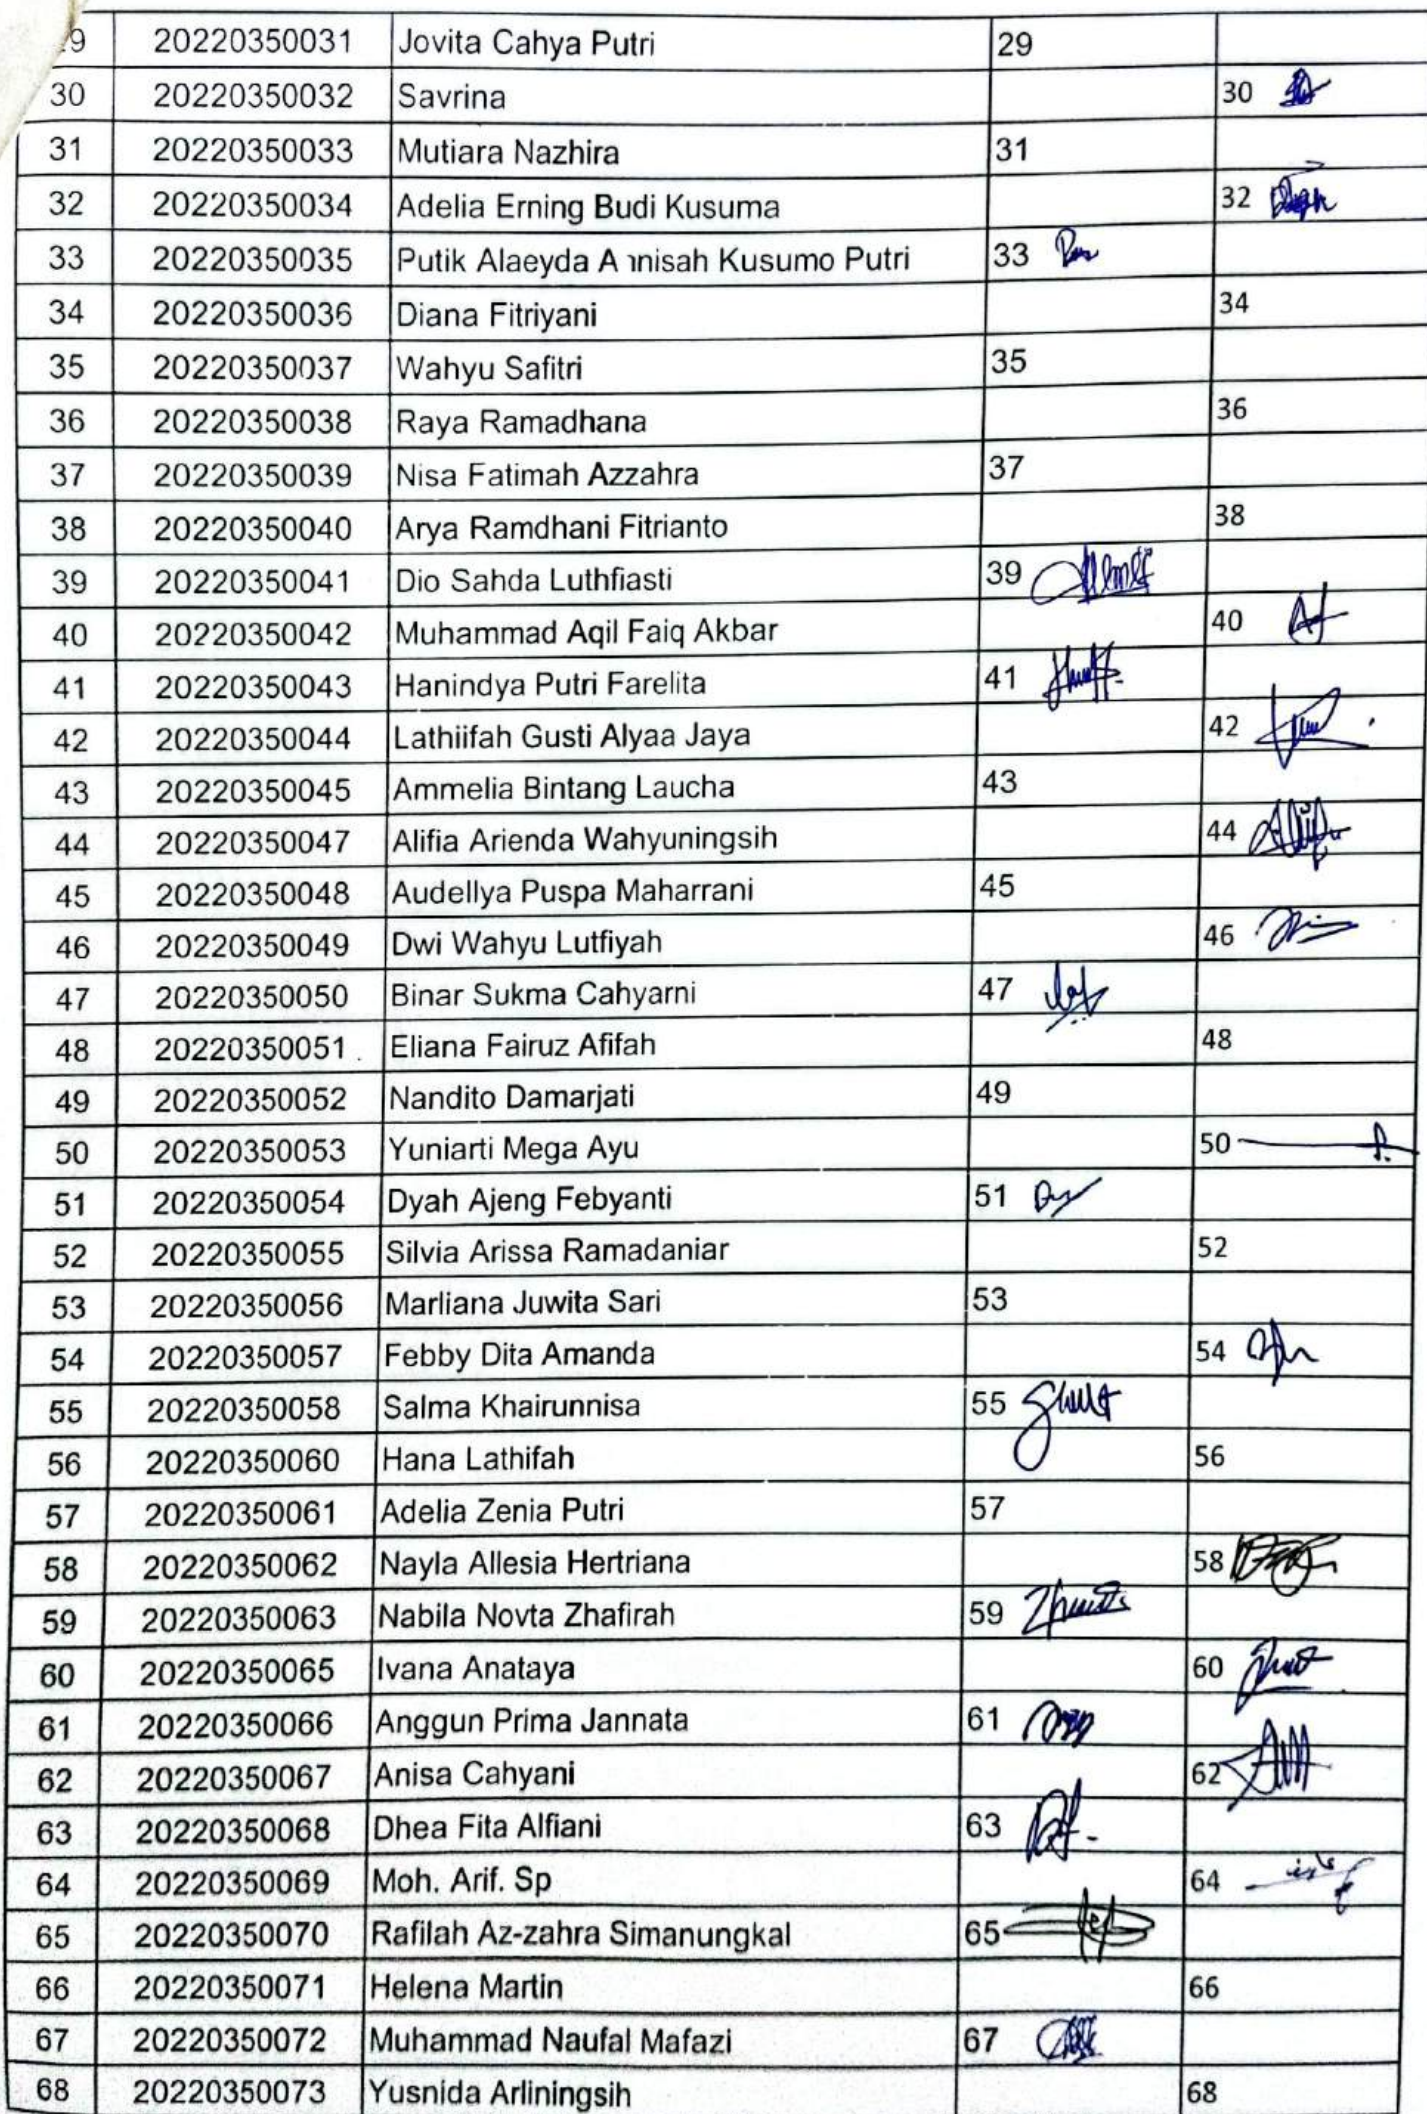 9 20220350031 Jovita Cahya Putri 29
30 20220350032 Savrina 30
31 20220350033 Mutiara Nazhira 31
32 20220350034 Adelia Erning Budi Kusuma 32
33 20220350035 Putik Alaeyda Annisah Kusumo Putri 33
34 20220350036 Diana Fitriyani 34
35 20220350037 Wahyu Safitri 35
36 20220350038 Raya Ramadhana 36
37 20220350039 Nisa Fatimah Azzahra 37
38 20220350040 Arya Ramdhani Fitrianto 38
39 20220350041 Dio Sahda Luthfiasti 39
40 20220350042 Muhammad Aqil Faiq Akbar 40
41 20220350043 Hanindya Putri Farelita 41
42 20220350044 Lathiifah Gusti Alyaa Jaya 42
43 20220350045 Ammelia Bintang Laucha 43
44 20220350047 Alifia Arienda Wahyuningsih 44
45 20220350048 Audellya Puspa Maharrani 45
46 20220350049 Dwi Wahyu Lutfiyah 46
47 20220350050 Binar Sukma Cahyarni 47
48 20220350051 Eliana Fairuz Afifah 48
49 20220350052 Nandito Damarjati 49
50 20220350053 Yuniarti Mega Ayu 50
51 20220350054 Dyah Ajeng Febyanti 51
52 20220350055 Silvia Arissa Ramadaniar 52
53 20220350056 Marliana Juwita Sari 53
54 20220350057 Febby Dita Amanda 54
55 20220350058 Salma Khairunnisa 55
56 20220350060 Hana Lathifah 56
57 20220350061 Adelia Zenia Putri 57
58 20220350062 Nayla Allesia Hertriana 58
59 20220350063 Nabila Novta Zhafirah 59
60 20220350065 Ivana Anataya 60
61 20220350066 Anggun Prima Jannata 61
62 20220350067 Anisa Cahyani 62
63 20220350068 Dhea Fita Alfiani 63
64 20220350069 Moh. Arif. Sp 64
65 20220350070 Rafilah Az-zahra Simanungkal 65
66 20220350071 Helena Martin 66
67 20220350072 Muhammad Naufal Mafazi 67
68 20220350073 Yusnida Arliningsih 68